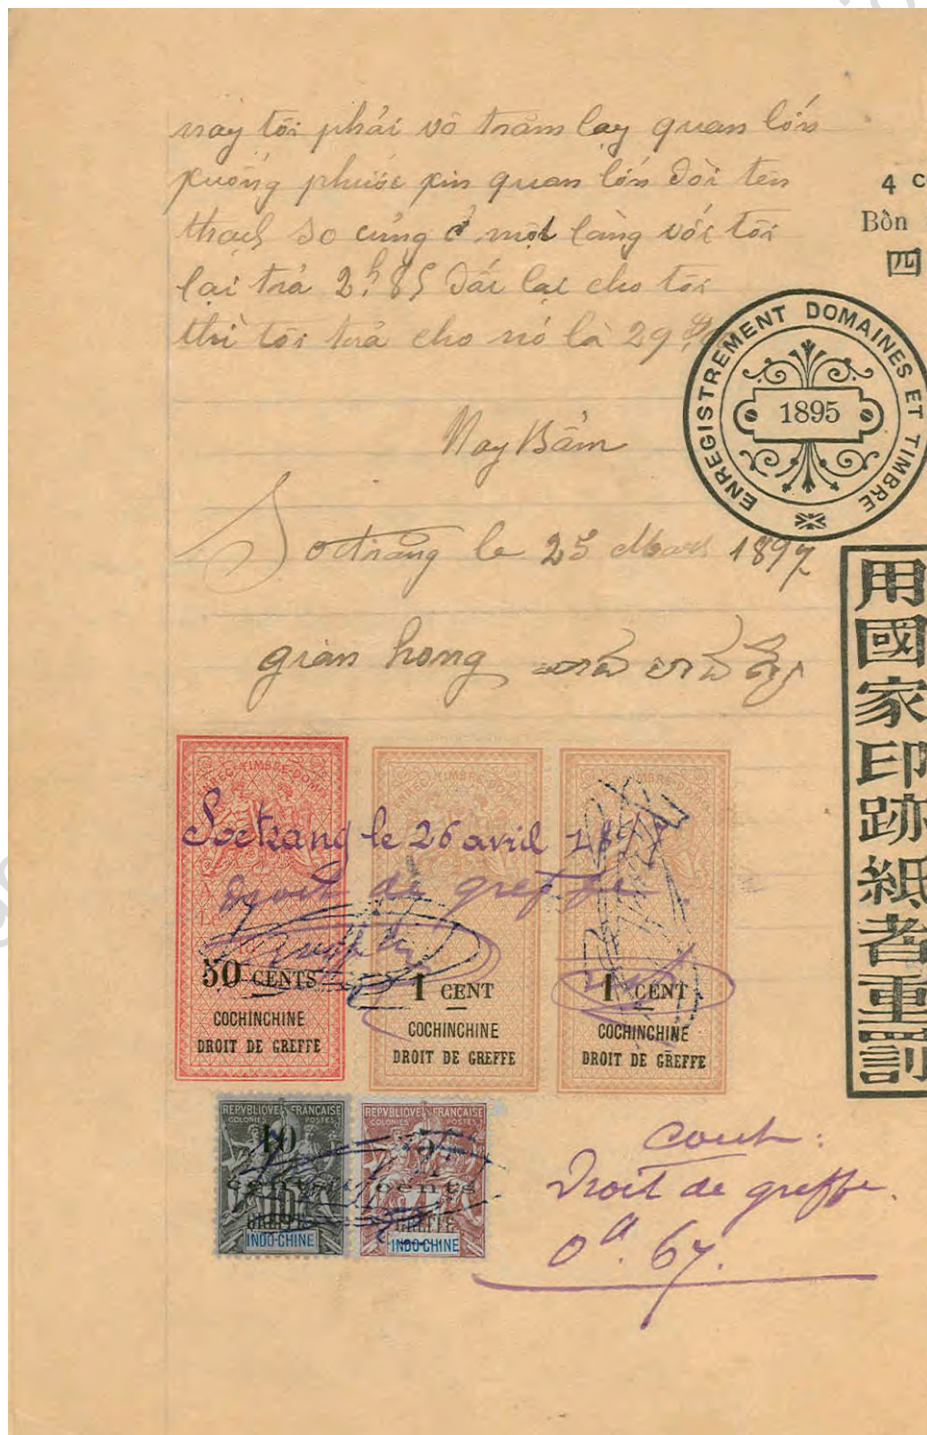 này tôi phải vô trăm lạy quan lớn
xuống phước xin quan lớn đòi tên
thạch so cũng ở một làng với tôi
lại trả 2$85 dất lại cho tôi
thì tôi trả cho nó là 29$
Nay Bẩm
Soctrang le 25 Mars 1897
gian hong
4 C
Bồn
四
ENREGISTREMENT DOMAINES ET TIMBRE
1895
用國家印跡紙者重罰
Soctrang le 26 avril 1897
Droit de greffe
50 CENTS
COCHINCHINE
DROIT DE GREFFE
1 CENT
COCHINCHINE
DROIT DE GREFFE
1 CENT
COCHINCHINE
DROIT DE GREFFE
REPVBLIQVE FRANÇAISE
COLONIES POSTES
10
cents
GREFFE
INDO-CHINE
REPVBLIQVE FRANÇAISE
COLONIES POSTES
5
cents
GREFFE
INDO-CHINE
Cout:
Droit de greffe.
0$.67.